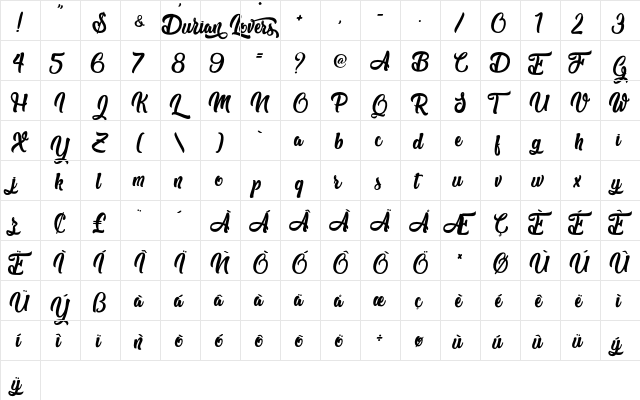 ! " $ & ' Durian Lovers ( * + , - . / 0 1 2 3
4 5 6 7 8 9 = ? @ A B C D E F G
H I J K L M N O P Q R S T U V W
X Y Z ( \ ) ` a b c d e f g h i
j k l m n o p q r s t u v w x y
z ₵ £ ¨ ´ À Á Â Ã Ä Å Æ Ç È É Ê
Ë Ì Í Î Ï Ñ Ò Ó Ô Õ Ö × Ø Ù Ú Û
Ü Ý ß à á â ã ä å æ ç è é ê ë ì
í î ï ñ ò ó ô õ ö ÷ ø ù ú û ü ý
ÿ